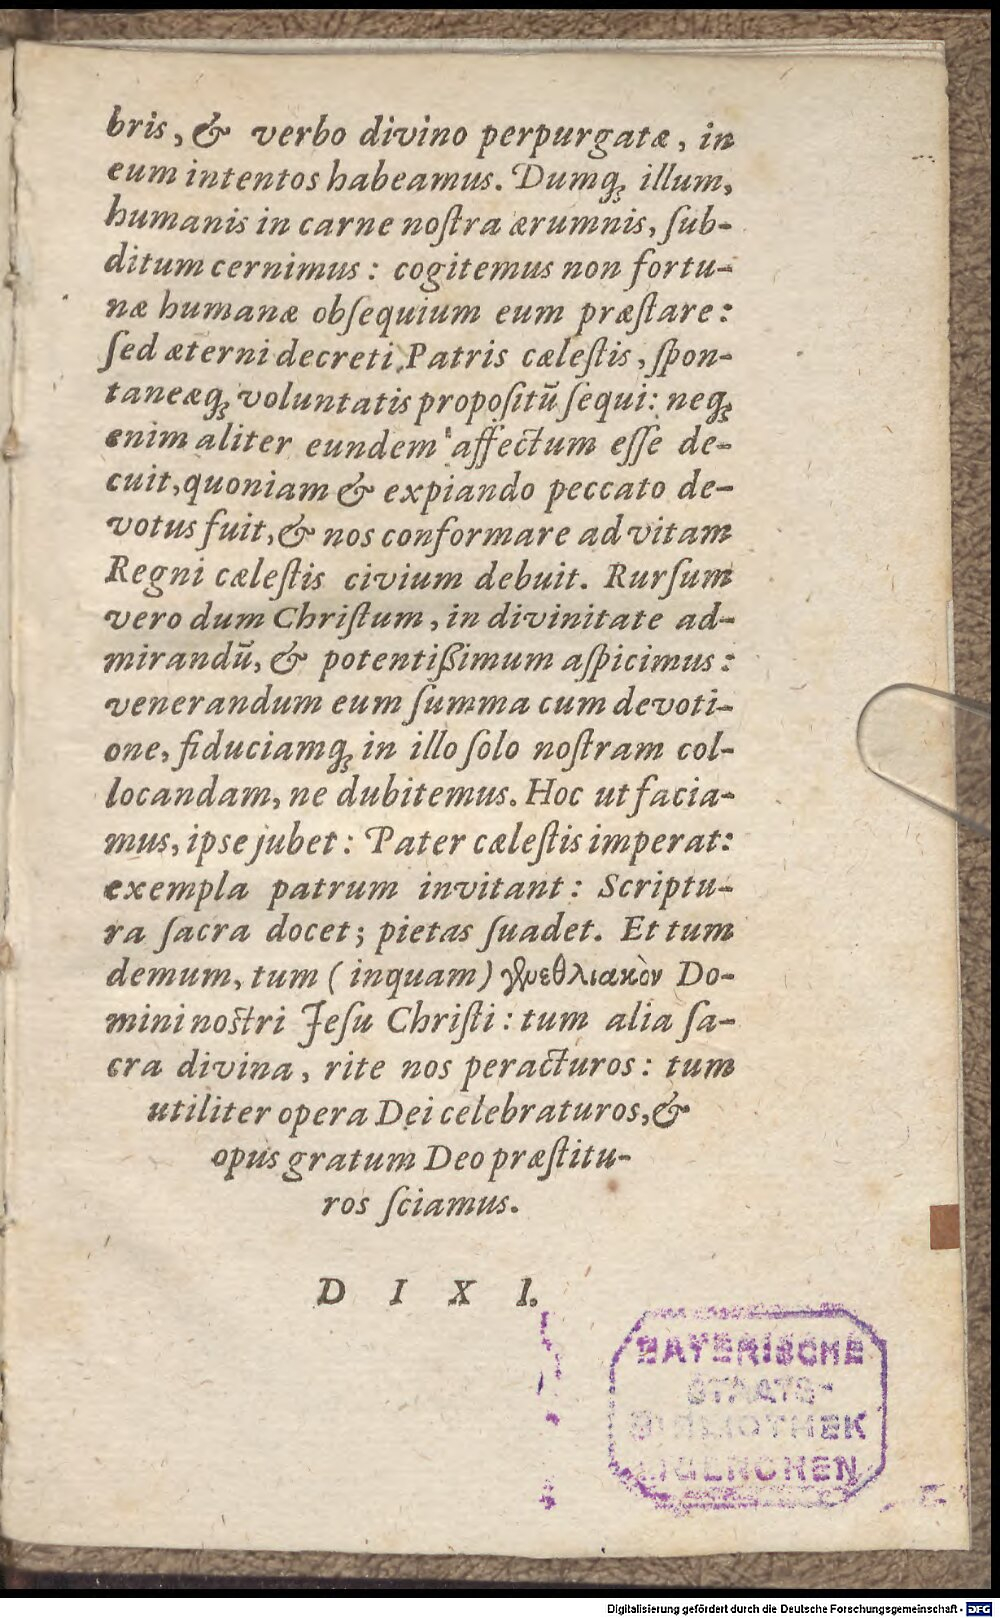 bris, & verbo divino perpurgatæ, in
eum intentos habeamus. Dumq́ꝫ illum,
humanis in carne noſtra ærumnis, ſub-
ditum cernimus: cogitemus non fortu-
næ humanæ obſequium eum præſtare:
ſed æterni decreti Patris cæleſtis, ſpon-
taneæq́ꝫ voluntatis propoſitũ ſequi: neq́ꝫ
enim aliter eundem affectum eſſe de-
cuit, quoniam & expiando peccato de-
votus fuit, & nos conformare ad vitam
Regni cæleſtis civium debuit. Rurſum
vero dum Chriſtum, in divinitate ad-
mirandũ, & potentißimum aſpicimus:
venerandum eum ſumma cum devoti-
one, fiduciamq́ꝫ in illo ſolo noſtram col-
locandam, ne dubitemus. Hoc ut facia-
mus, ipse jubet: Pater cæleſtis imperat:
exempla patrum invitant: Scriptu-
ra ſacra docet; pietas ſuadet. Et tum
demum, tum (inquam) γενεθλιακὸν Do-
mini nostri Jeſu Chriſti: tum alia ſa-
cra divina, rite nos peracturos: tum
utiliter opera Dei celebraturos, &
opus gratum Deo præſtitu-
ros ſciamus.
D I X I.
BAYERISCHE
STAATS-
BIBLIOTHEK
MUENCHEN
Digitalisierung gefördert durch die Deutsche Forschungsgemeinschaft - DFG